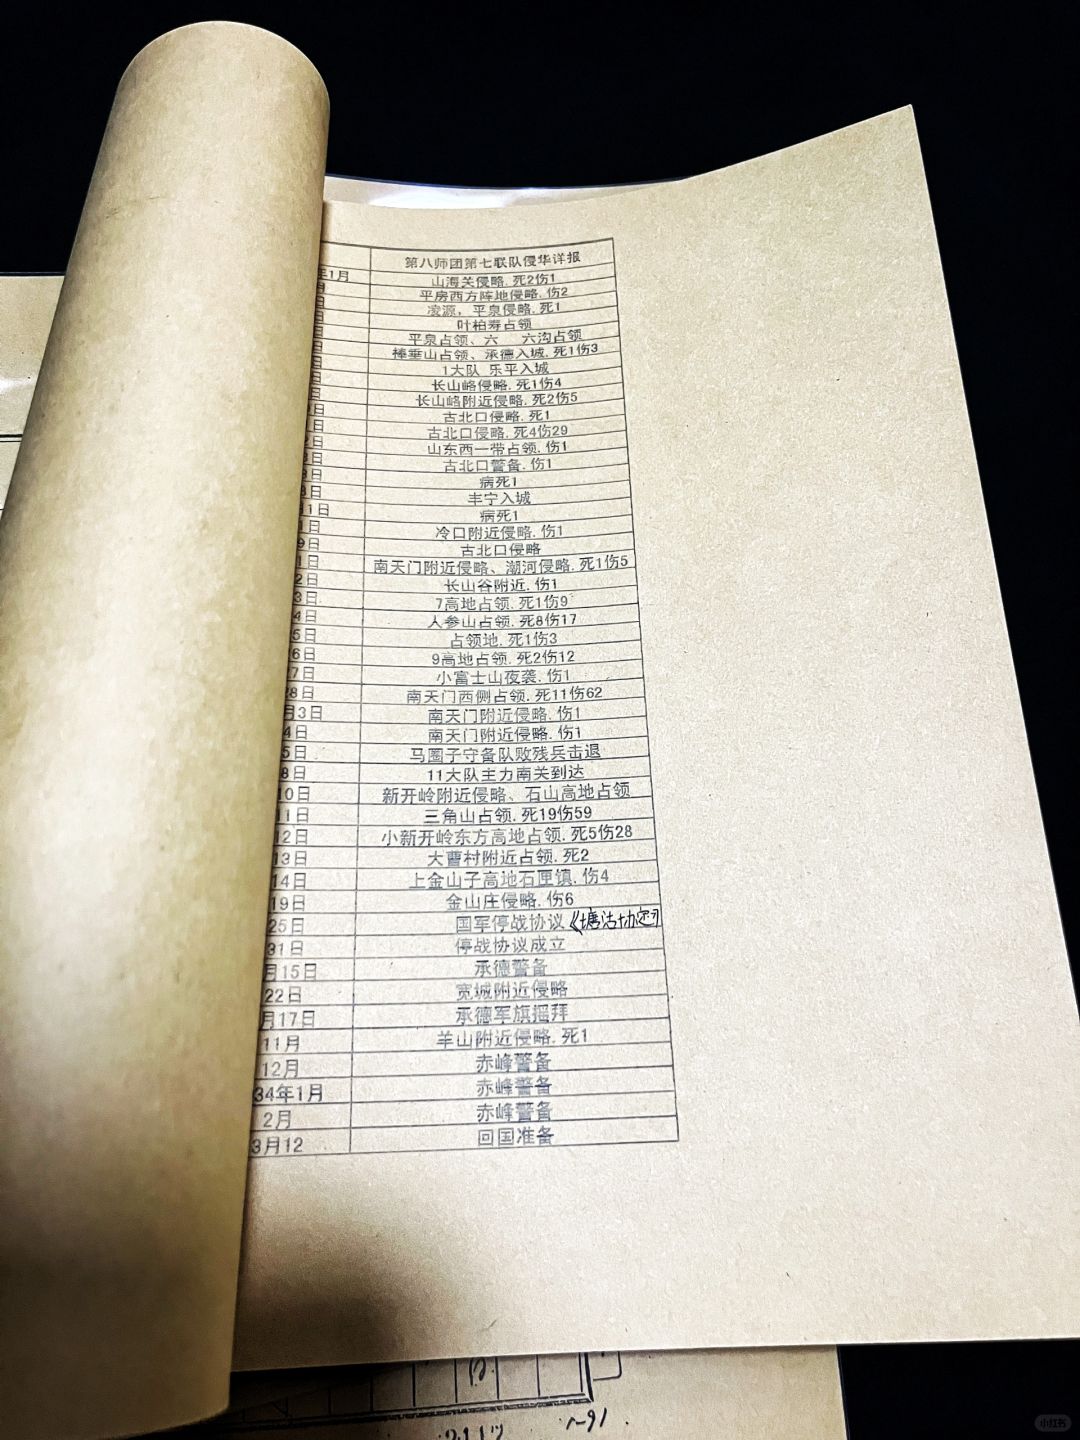 第八师团第七联队侵华详报
年1月 山海关侵略.死2伤1
月 平房西方阵地侵略.伤2
日 凌源，平泉侵略.死1
日 叶柏寿占领
日 平泉占领、六 六沟占领
日 棒垂山占领、承德入城.死1伤3
日 1大队 乐平入城
日 长山峪侵略.死1伤4
日 长山峪附近侵略.死2伤5
日 古北口侵略.死1
1日 古北口侵略.死4伤29
2日 山东西一带占领.伤1
3日 古北口警备.伤1
8日 病死1
8日 丰宁入城
月1日 病死1
1日 冷口附近侵略.伤1
9日 古北口侵略
1日 南天门附近侵略、潮河侵略.死1伤5
2日 长山谷附近.伤1
3日 7高地占领.死1伤9
4日 人参山占领.死8伤17
5日 占领地.死1伤3
6日 9高地占领.死2伤12
7日 小富士山夜袭.伤1
28日 南天门西侧占领.死11伤62
月3日 南天门附近侵略.伤1
4日 南天门附近侵略.伤1
5日 马圈子守备队败残兵击退
8日 11大队主力南关到达
10日 新开岭附近侵略、石山高地占领
11日 三角山占领.死19伤59
12日 小新开岭东方高地占领.死5伤28
13日 大曹村附近占领.死2
14日 上金山子高地石匣镇.伤4
19日 金山庄侵略.伤6
25日 国军停战协议《塘沽协定》
31日 停战协议成立
月15日 承德警备
22日 宽城附近侵略
月17日 承德军旗摇拜
11月 羊山附近侵略.死1
12月 赤峰警备
34年1月 赤峰警备
2月 赤峰警备
3月12 回国准备
小红书